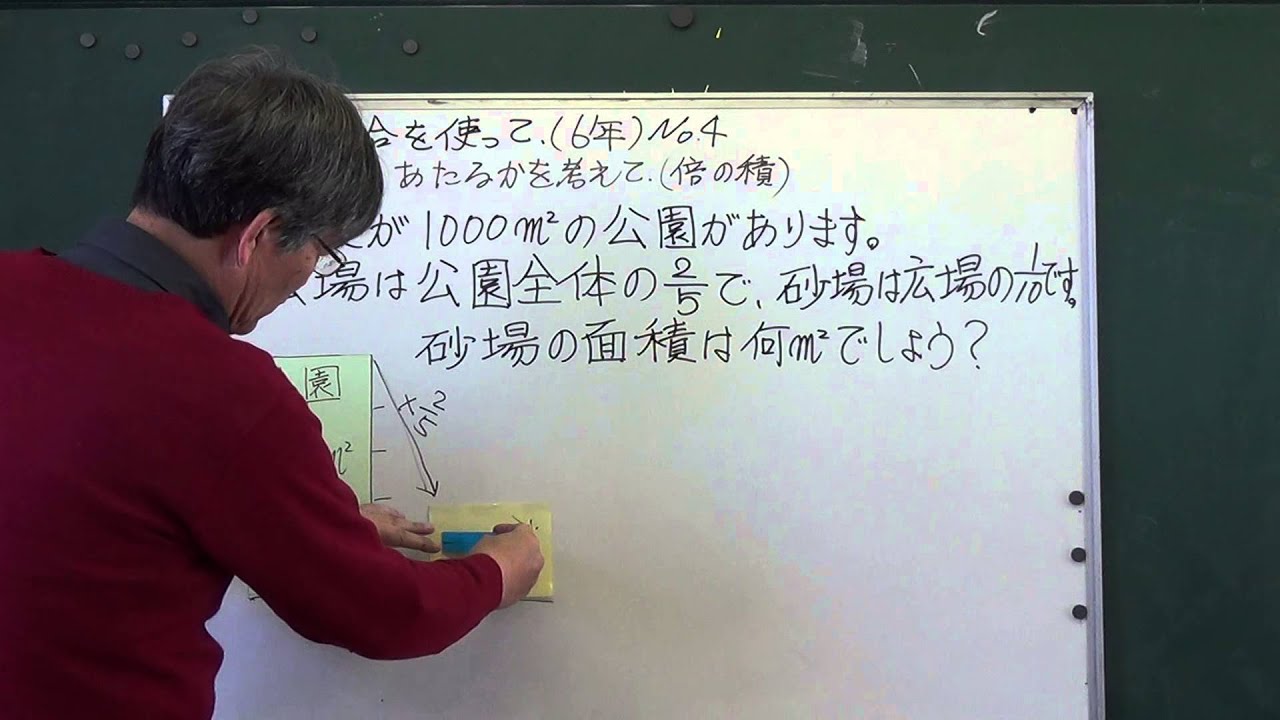 合を使って.(6年)No.4
あたるかを考えて.(倍の積)
が1000m²の公園があります。
場は公園全体の2/5で、砂場は広場の1/10です。
砂場の面積は何m²でしょう?
園
×2/5
m²